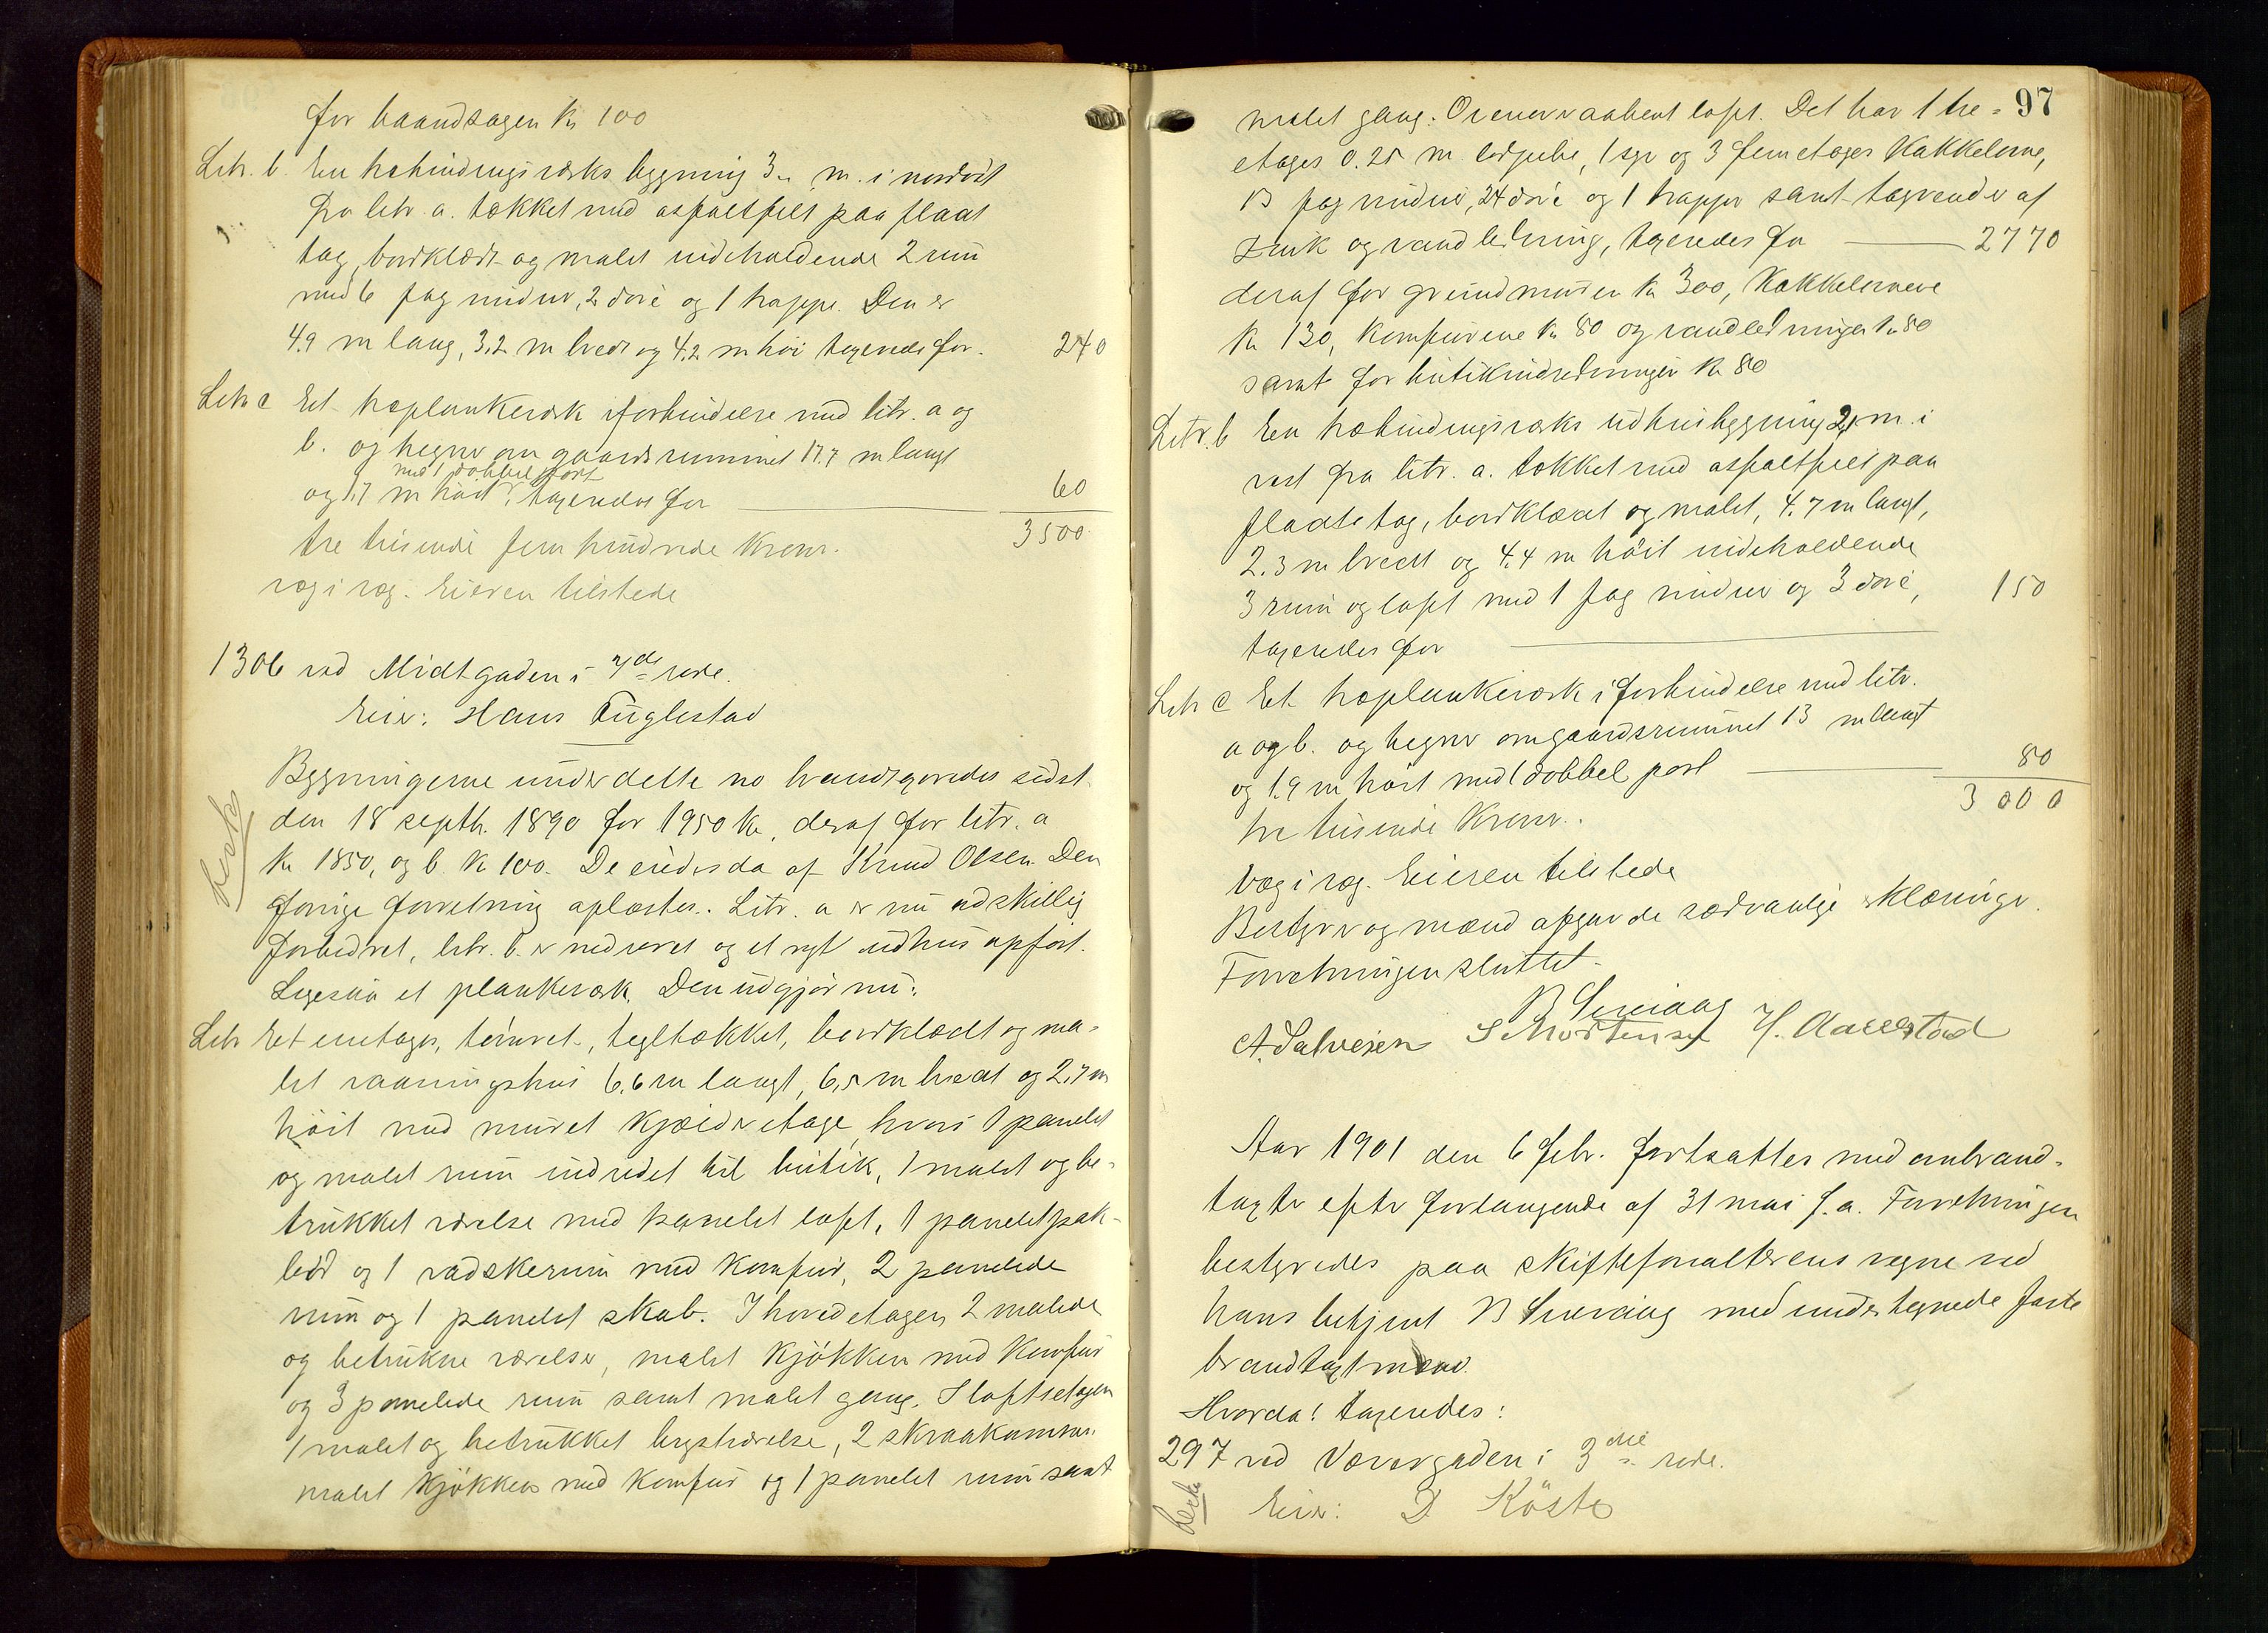 for baandsagen kr 100
Litr. b. En trebindingsverks bygning 3.. m. i nordöst
fra litr. a. tækket med asfaltfilt paa fladt
tag, bordklædt og malet indeholdende 2 rum
med 6 fag vinduer, 2 döre og 1 trappe. Den er
4.9 m lang, 3,2 m bred og 4,2 m höi taxeredes for. 240
Litr c Et træplankeverk i forbindelse med litr. a og
b. og hegner om gaardsrummet 17.7 m langt
med 1 dobbel port
og 1,7 m höit, taxeredes for 60
3500
tre tusinde fem hundrede Kroner.
væg i væg. Eieren tilstede
1306 ved Midtgaden i 7de rode.
Eier: Hans Fuglestad
Bygningerne under dette no brandtaxeredes sidst
den 18 septb. 1890 for 1950 kr, deraf for litr. a
kr 1850, og b kr 100. De eiedes da af Knud Olsen. Den
forrige forretning oplæstes. Litr. a er nu adskillig
forbedret, litr. b. er nedrevet og et nyt udhus opfört.
Ligesaa et plankeverk. Den udgjör nu:
Litr Et enetages, tömret, tegltækket, bordklædt og ma-
let vaaningshus 6,6 m langt, 6,5 m bredt og 2.7 m
höit med muret kjælderetage, hvori 1 panelet
og malet rum indredet til butik, 1 malet og be-
trukket værelse med panelet loft, 1 panelet pak-
bod og 1 vadskerum med komfur, 2 panelede
rum og 1 panelet skab. I hovedetagen 2 malede
og betrukne værelser, malet kjökken med komfur
og 3 panelede rum samt malet gang. I loftsetagen
1 malet og betrukket kvistværelse, 2 skraakammer
malet kjökken med komfur og 1 panelet rum samt
besk
97
malet gang. Ovenover aabent loft. Det har 1 tre-
etages 0.25 m. , 1 og 3 femetages Kakkelovne,
13 fag vinduer, 24 döre og 1 trapper samt tagrender af
zink og vandledning, taxeredes for 2770
deraf for grundmuren kr 300, Kakkelovnene
kr 130, komfurene kr 80 og vandledningen kr 80
samt for butikindredningen kr 80
Litr. b En træbindingsverks udhusbygning 2, m. i
vest fra litr. a. tækket med asfaltfilt paa
fladt tag, bordklædt og malet, 4.7 m langt,
2.3 m bredt og 4.4 m höit indeholdende
3 rum og loft med 1 fag vinduer og 3 döre, 150
taxeredes for
Litr c Et træplankeverk i forbindelse med litr.
a og b. og hegner om gaardsrummet 13 m langt
og 1.9 m höit med 1 dobbel port 80
3000
tre tusinde Kroner.
væg i væg. Eieren tilstede
Bestyrer og mænd afgav de sædvanlige erklæringer.
Forretningen sluttet.
B
A. Salvesen S Mortensen H. Aarrestad
Aar 1901 den 6 febr. fortsattes med ombrand-
taxter efter forlangende af 31 mai f.a. Forretningen
bestyredes paa skifteforvalterens vegne ved
hans betjent B med undertegnede faste
brandtaxtmænd.
Hvorda! taxeredes:
297 ved Vævergaden i 3die rode.
Eier: D. Köste
besk